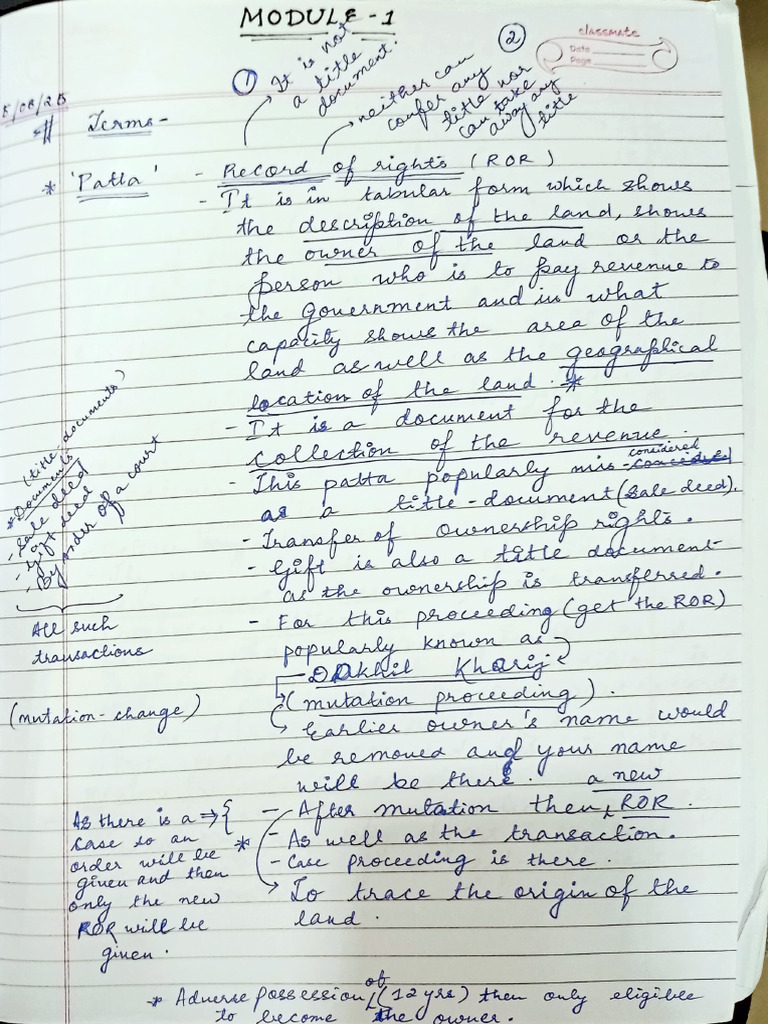 MODULE-1
classmate
Date
Page
① It is not
a title
document.
②
neither can
confer any
title nor
can take
away any
title
/08/25
# Terms-
* 'Patta' - Record of rights (ROR)
- It is in tabular form which shows
the description of the land, shows
the owner of the land or the
person who is to pay revenue to
the government and in what
capacity shows the area of the
land as well as the geographical
location of the land. *
- It is a document for the
collection of the revenue.
- This patta popularly mis-considered
as a title-document (Sale deed).
- Transfer of ownership rights.
- Gift is also a title document
as the ownership is transferred.
- For this proceeding (get the ROR)
popularly known as
- Dakhil Kharij
(mutation proceeding).
Earlier owner's name would
be removed and your name
will be there.
- After mutation then, a new ROR.
- As well as the transaction.
- Case proceeding is there.
To trace the origin of the
land.
(title-documents)
* Documents
- Sale deed
- Gift deed
- By order of a court
All such
transactions
(mutation-change)
As there is a ⇒ {
case so an *
order will be
given and then
only the new
ROR will be
given.
* Adverse possession of (12 yrs) then only eligible
to become the owner.